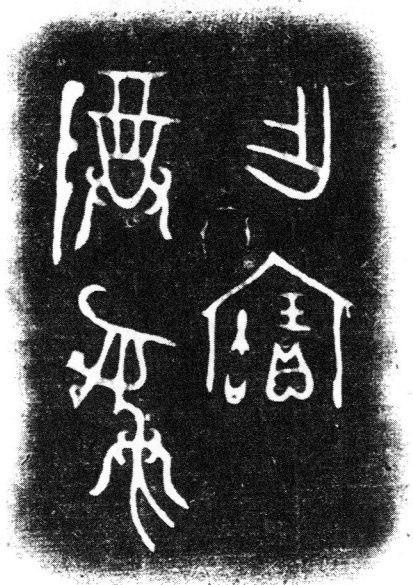 乍寶
尊彝